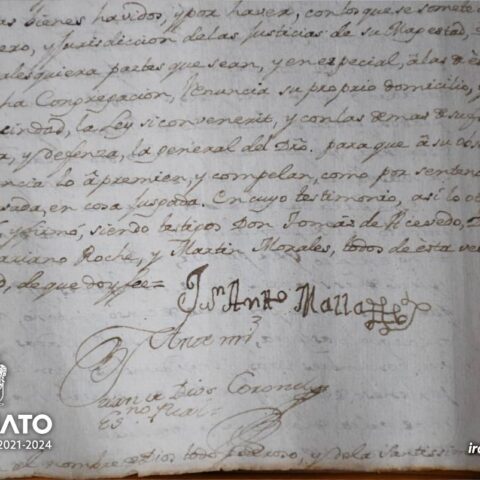 bienes havidos, y por haver, con los que se somete
ero, y Jurisdiccion de las Justicias de su Magestad,
alesquiera partes que sean, y en especial, â las de
ha Congregacion, renuncia su proprio domicilio,
cindad, la Ley si convenerit, y con las demas de su
y defenza, la general del Dro. para que â su
ncia lo âpremien, y compelan, como por senten
sada, en cosa juzgada. En cuyo testimonio, así lo
y firmó, siendo testigos Don Tomas de Acevedo,
ariano Roche, y Martin Morales, todos de esta ve
d, de que doy fee=
Jun Antto Malla
Ante mi
Juan de Dios Corone
Esno. Rl.
el nombre de Dios todo poderoso, y de la Santissi
ATO
2021-2024